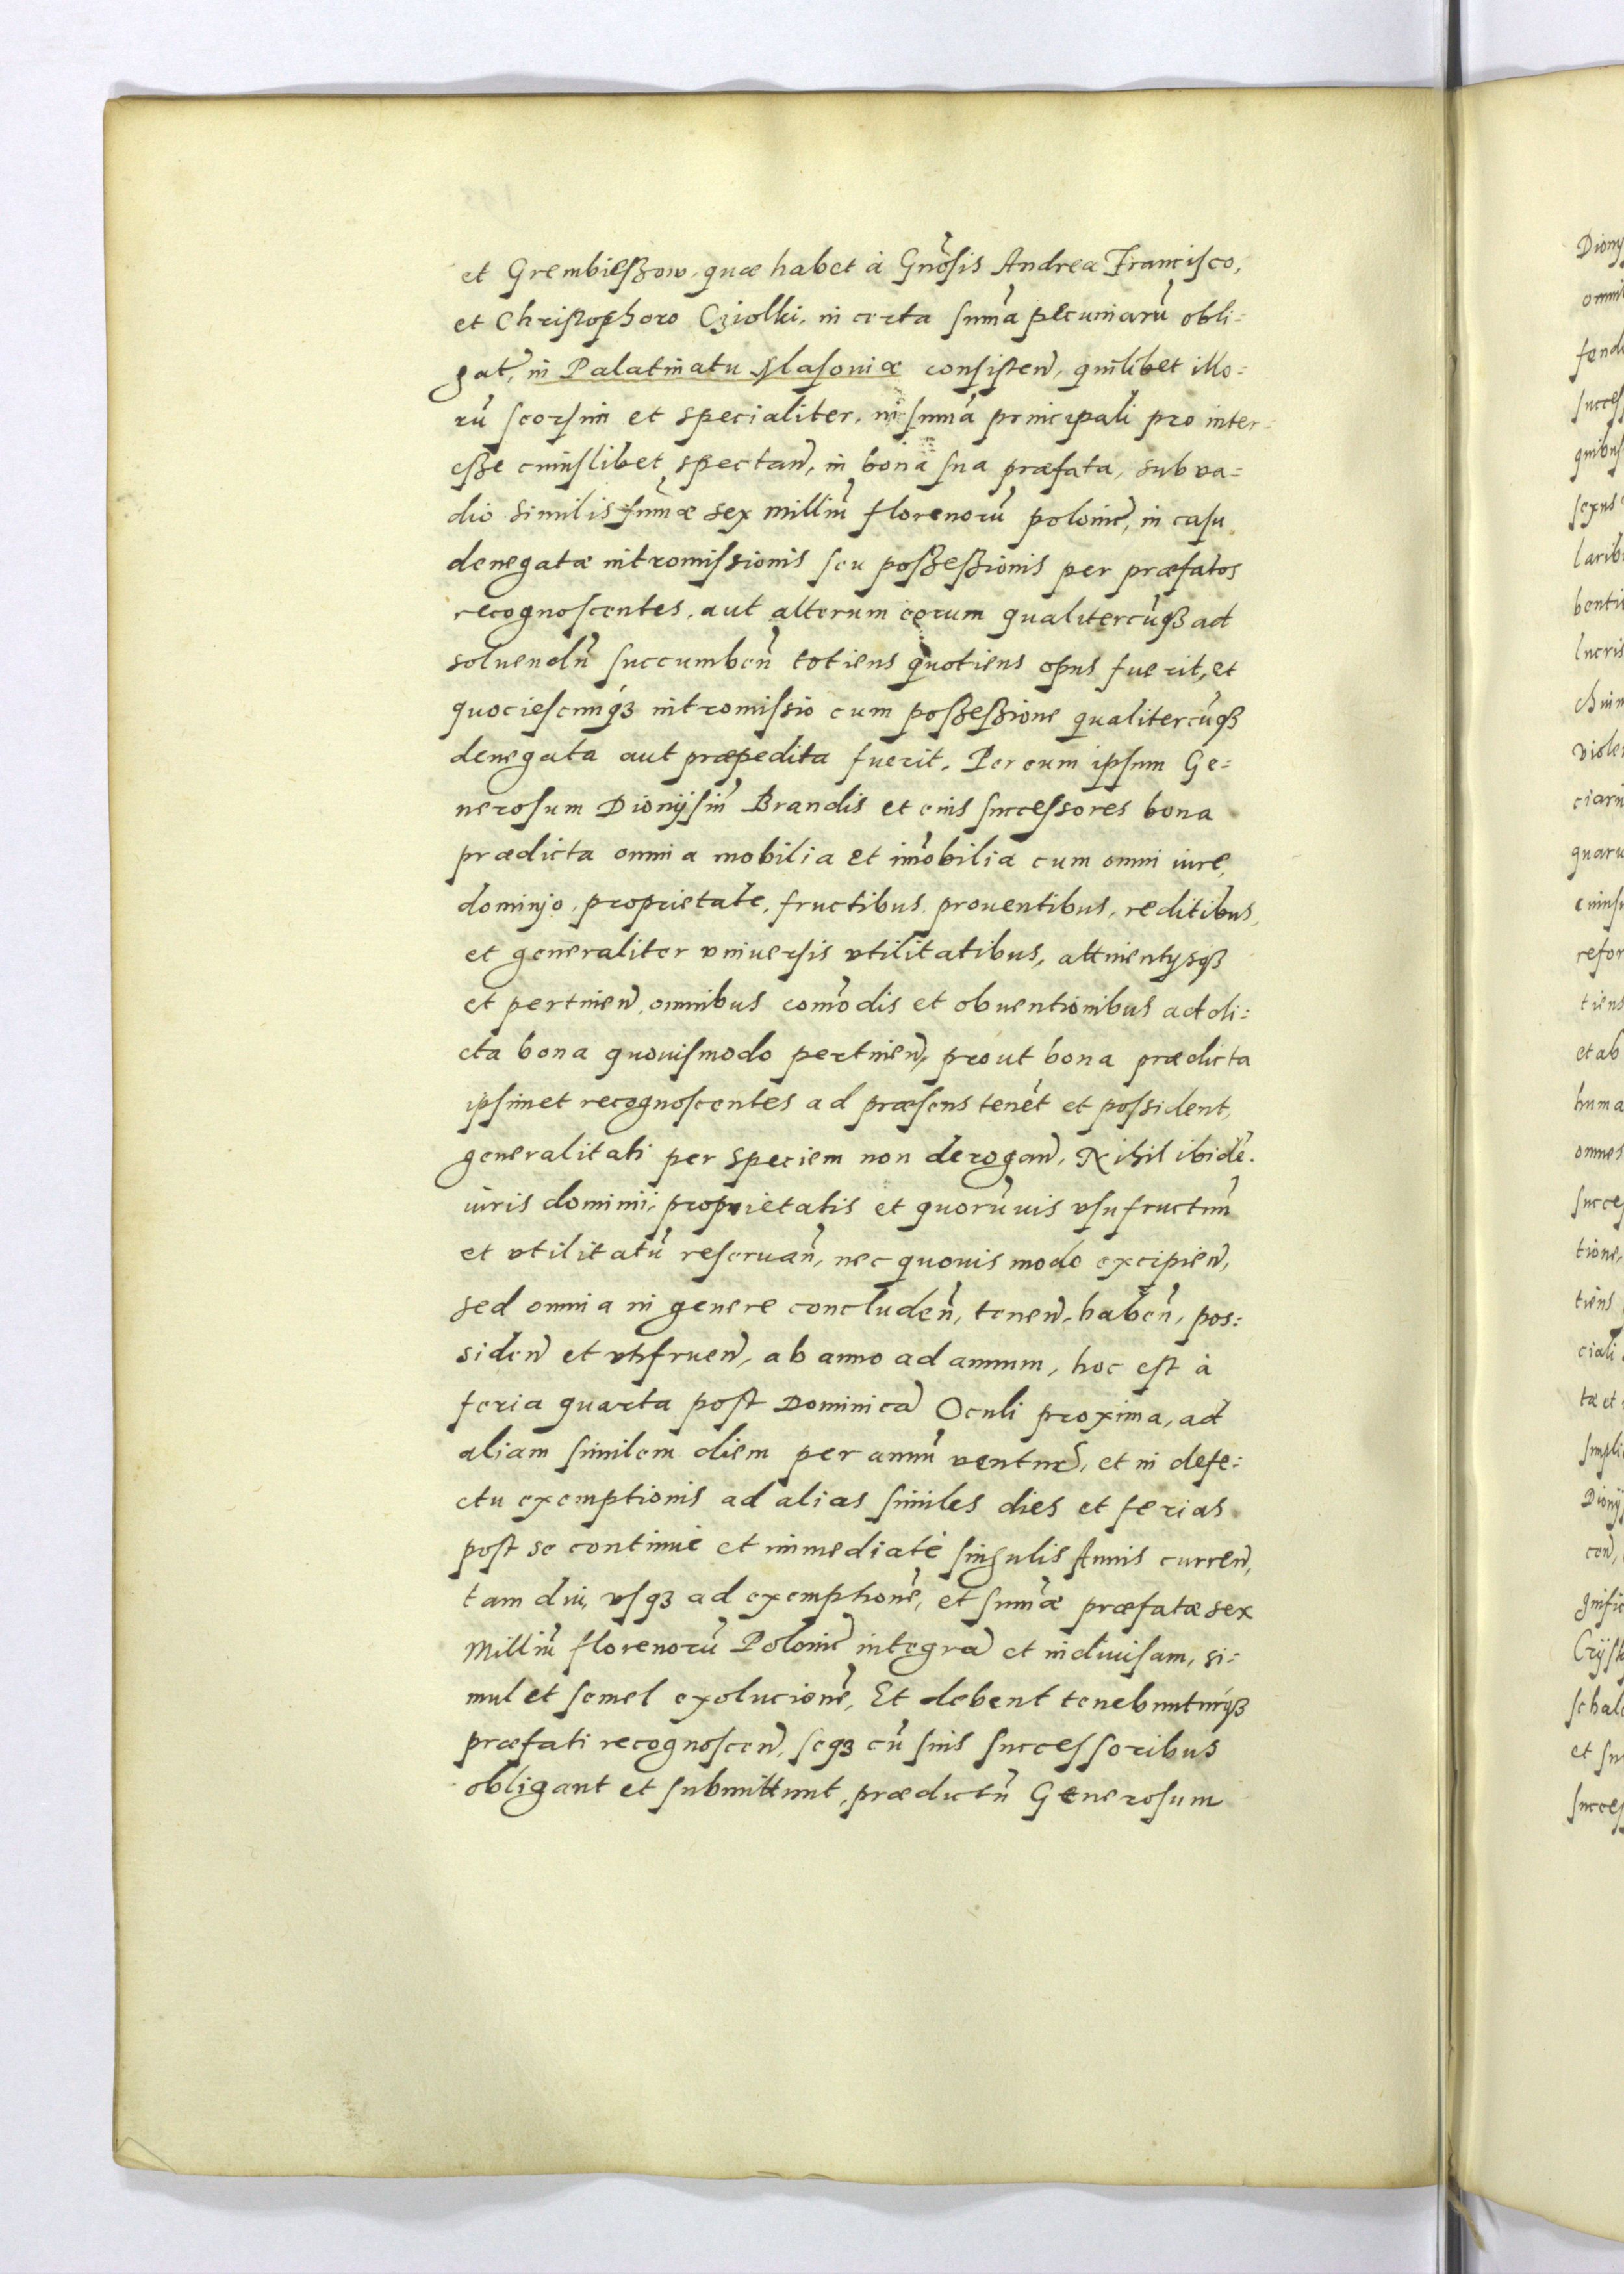 et Grembießzow, quæ habet à Gnõsis Andrea Francisco,
et Christophoro Cziolki, in certa sum̃a pecuniarũ obli=
gat̃, in Palatinatu Masoviæ consisten̄, quilibet illo=
rũ seorsim et specialiter, in sum̃a principali pro inter=
eße cuiuslibet spectan̄, in bona sua præfata, sub va=
dio similis sum̃æ sex milliũ florenorũ polonic̃, in casu
denegatæ intromissionis seu poßeßionis per præfatos
recognoscentes, aut alterum eorum qualitercũqꝫ ad
soluendũ succumben̄ totiens quotiens opus fuerit, et
quociescunqꝫ intromissio cum poßeßione qualitercũqꝫ
denegata aut præpedita fuerit, Per eum ipsum Ge=
nerosum Dionysiũ Brandis et eius successores bona
prædicta omnia mobilia et im̃obilia cum omni iure,
dominio, proprietate, fructibus, prouentibus, reditibus,
et generaliter vniuersis vtilitatibus, attinentijsqꝫ
et pertinen̄, omnibus com̃odis et obuentionibus ad di=
cta bona quouismodo pertinen̄, prout bona prædicta
ipsimet recognoscentes ad præsens tenẽt et possident,
generalitati per speciem non derogan̄, Nihil ibidẽ.
iuris dominii, proprietatis et quorũuis vsufructuũ
et vtilitatũ reseruan̄, nec quouis modo excipien̄,
sed omnia in genere concluden̄, tenen̄, haben̄, pos=
siden̄ et vtifruen̄, ab anno ad annum, hoc est à
feria quarta post Dominicã Oculi proxima, ad
aliam similem diem per annũ ventur̃, et in defe=
ctu exemptionis ad alias similes dies et ferias
post se continuè et immediatè singulis Annis curren̄,
tam diu, vsqꝫ ad exemptionẽ, et sum̃æ præfatæ sex
Milliũ florenorũ Polonic̃ integrã et indiuisam, si=
mul et semel exolucionẽ, Et debent tenebunturqꝫ
præfati recognoscen̄, seqꝫ cũ suis successoribus
obligant et submittunt, prædictũ Generosum